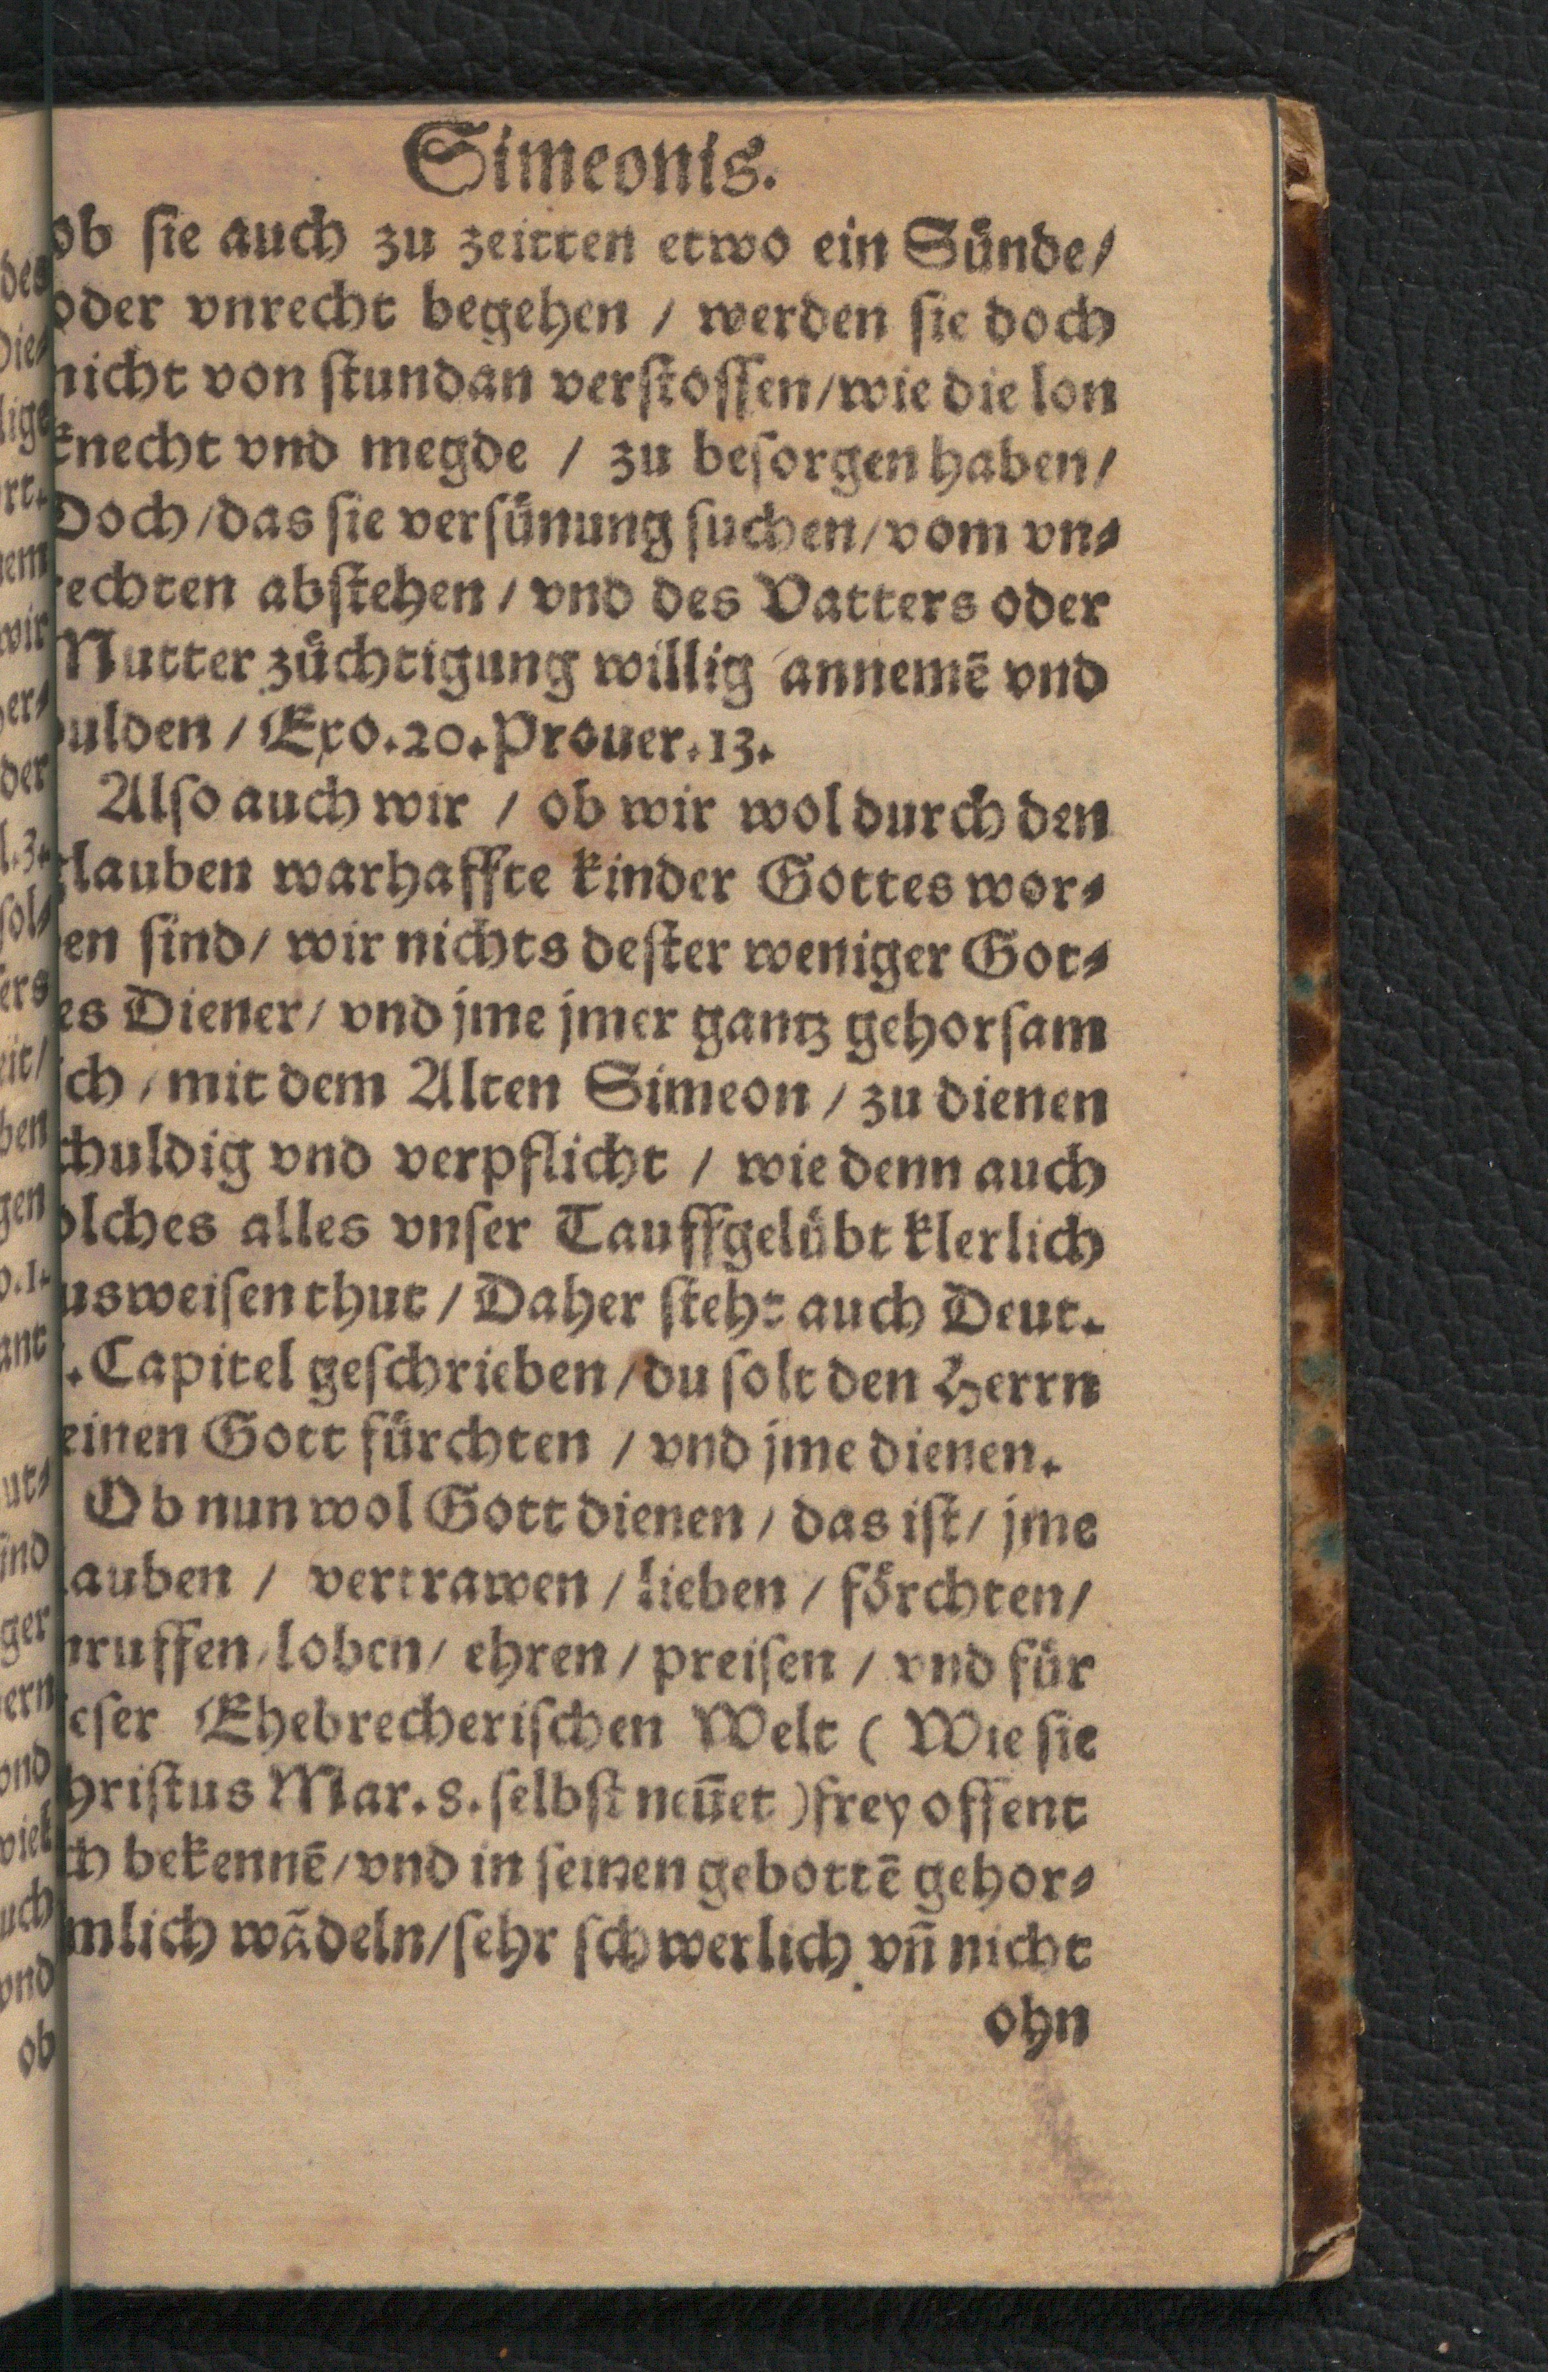 Simeonis.
ob sie auch zu zeitten etwo ein Sünde/
oder vnrecht begehen / werden sie doch
nicht von stundan verstossen/wie die lon
knecht vnd megde / zu besorgen haben/
Doch/das sie versünung suchen/vom vn⸗
rechten abstehen / vnd des Vatters oder
Mutter züchtigung willig annemē vnd
dulden / Exo.20.Prouer.13.
Also auch wir / ob wir wol durch den
glauben warhaffte kinder Gottes wor⸗
en sind/ wir nichts dester weniger Got⸗
es Diener/ vnd jme jmer gantz gehorsam
ich / mit dem Alten Simeon / zu dienen
chuldig vnd verpflicht / wie denn auch
olches alles vnser Tauffgelübt klerlich
usweisen thut / Daher steht auch Deut.
. Capitel geschrieben/du solt den Herrn
einen Gott fürchten / vnd jme dienen.
Ob nun wol Gott dienen / das ist/ jme
lauben / vertrawen / lieben / förchten/
nruffen/loben/ ehren / preisen / vnd für
ieser Ehebrecherischen Welt ( Wie sie
hristus Mar.8.selbst neñet )frey offent
ch bekennē/vnd in seinen gebottē gehor⸗
mlich wādeln/sehr schwerlich vñ nicht
ohn
des
die⸗
lige
rt.
nem
wir
er⸗
der
l.3.
sol⸗
ers
eit/
ben
gen
o.1.
ant
ut⸗
ind
ger
ern
vnd
viel
uch
vnd
ob